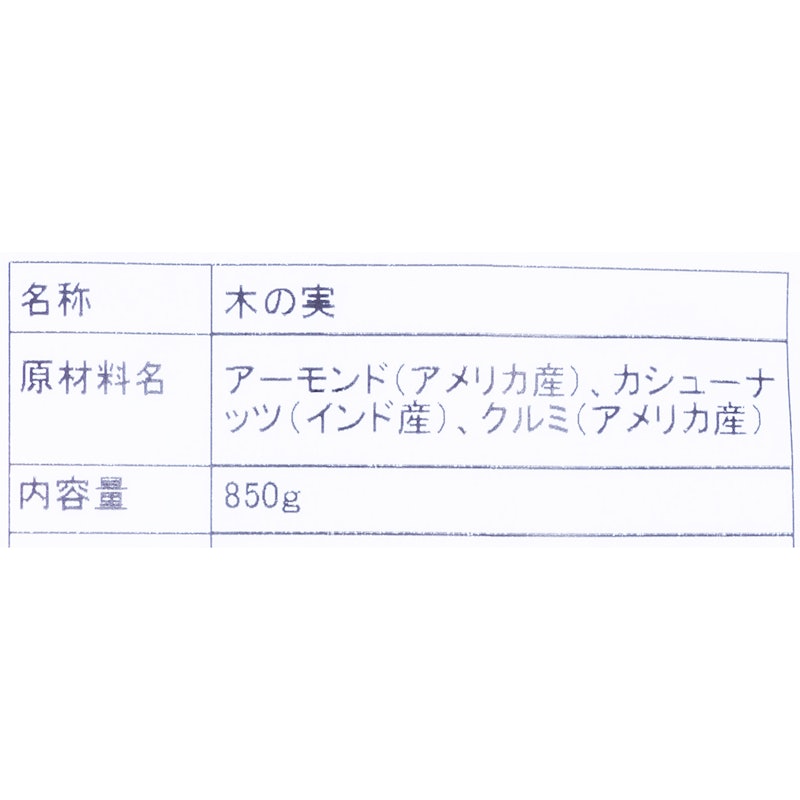 名称 木の実
原材料名 アーモンド(アメリカ産)、カシューナ
ッツ(インド産)、クルミ(アメリカ産)
内容量 850g